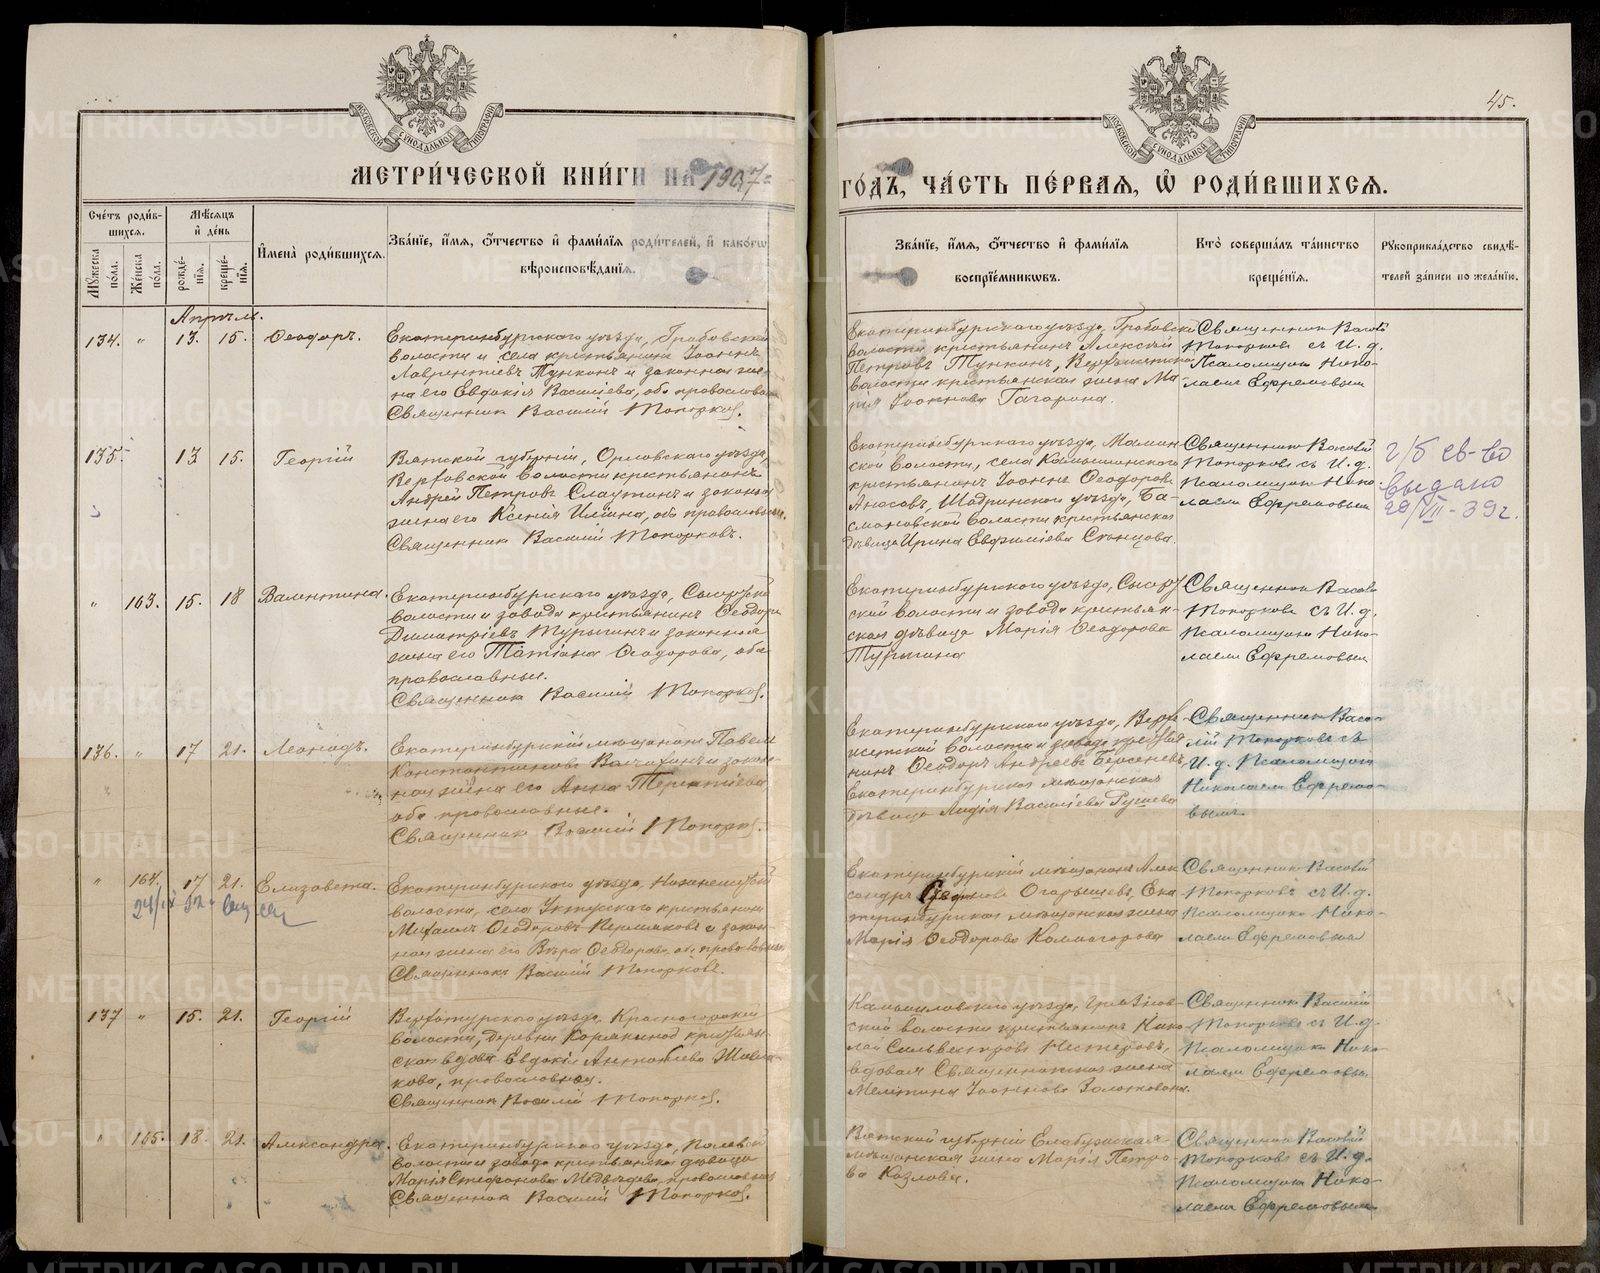 45.
МЕТРИ́ЧЕСКОЙ КНИ́ГИ НА 1907
ГО́ДЪ, ЧА́СТЬ ПЕ́РВАЯ, Ѽ РОДИ́ВШИХСЯ.
Сче́тъ роди́в-
шихся.
Мѣ́сяцъ
и҆ де́нь
Мꙋ́жеска по́ла.
Же́нска по́ла.
рожде́-
нїя.
креще́-
нїя.
И҆мена̀ роди́вшихся.
Зва́нїе, и҆́мя, ѻ҆́тчество и҆ фами́лїя роди́телей, и҆ како́гѡ
вѣроисповѣ́данїя.
Зва́нїе, и҆́мя, ѻ҆́тчество и҆ фами́лїя
воспрїе́мниковъ.
Кто̀ соверша́лъ та́инство
креще́нїя.
Рꙋкоприкла́дство свидѣ́-
телей за́писи по жела́нїю.
Апрѣль.
134. " 13. 15. Ѳеодоръ.
Екатеринбургскаго уѣзда, Гробовской
волости и села крестьянинъ Іоаннъ
Лаврентіевъ Тункинъ и законная же-
на его Евдокія Васильева, оба православн
Священник Василій Топорков.
Екатеринбургскаго уѣзда, Гробовской
волости крестьянинъ Алексій
Петровъ Тункинъ, Верхисетской
волости крестьянская жена Ма-
рія Іоаннова Гагарина.
Священник Васий
Топорковъ съ И. д.
Псаломщика Нико-
лаем Ефремовым
135. 13 15. Георгій
Вятской губерніи, Орловскаго уѣзда,
Верховской волости крестьянинъ
Андрей Петровъ Слаутинъ и законная
жена его Ксенія Ильина, оба православные.
Священник Василій Топорковъ.
Екатеринбургскаго уѣзда, Мамин-
ской волости, села Камышинского
крестьянинъ Іоаннъ Ѳеодоровъ
Аносовъ, Шадринскаго уѣзда, Ба-
смановской волости крестьянская
дѣвица Ирина Евфиміева
Священник Васий
Топорковъ съ И. д.
Псаломщика Нико-
лаем Ефремовым
г/б св-во
выдано
29/VII-39г.
" 163. 15. 18 Валентина.
Екатеринбургскаго уѣзда, Сысертской
волости и завода крестьянинъ Ѳеодоръ
Димитріевъ Турыгинъ и законная
жена его Татіана Ѳеодорова, оба
православные.
Священник Василій Топорков.
Екатеринбургскаго уѣзда, Сысерт-
ской волости и завода крестьян-
ская дѣвица Марія Ѳеодорова
Турыгина
Священник Васий
Топорковъ съ И. д.
Псаломщика Нико-
лаем Ефремовым
136. " 17 21. Леонидъ.
Екатеринбургскій мѣщанинъ Павелъ
Константиновъ и закон-
ная жена его Анна Терентіева
оба православные.
Священник Василій Топорков.
Екатеринбургскаго уѣзда, Верх-
исетской волости и завода крестья-
нинъ Ѳеодоръ Андреевъ Берсеневъ,
Екатеринбургская мѣщанская
дѣвица Лидія Васильева
Священник Васи-
лій Топорковъ съ
И. д. Псаломщика
Николаем Ефремо-
вымъ.
" 164. 17 21. Елизавета.
Екатеринбургскаго уѣзда, Нижнеисетской
волости, села Уктусскаго крестьянинъ
Михаилъ Ѳеодоровъ Пермяковъ и закон-
ная жена его Вѣра Ѳеодорова, оба православные
Священникъ Василій Топорковъ.
Екатеринбургскій мѣщанинъ Алек-
сандръ Огарышевъ, Ека-
теринбургская мѣщанская жена
Марія Ѳеодорова Колмогорова
Священник Васий
Топорковъ съ И. д.
Псаломщика Нико-
лаем Ефремовым
137 " 15. 21. Георгій
Верхотурскаго уѣзда, Красногорской
волости, деревни крестьян-
ская вдова Евдокія
кова, православная.
Священник Василій Топорков.
Камышловскаго уѣзда, Грязнов-
ской волости крестьянинъ Нико-
лай Сильвестровъ Нестеровъ,
вдовая Священническая жена
Мелитина Іоаннова
Священник Василій
Топорковъ съ И. д.
Псаломщика Нико-
лаем Ефремовым
" 165. 18. 21. Александра.
Екатеринбургскаго уѣзда, Полевской
волости и завода крестьянская дѣвица
Марія Стефанова Медвѣдева, православная
Священник Василій Топорков.
Вятской губерніи Елабужская
мѣщанская жена Марія Петро-
ва Козлова.
Священник Васий
Топорковъ съ И. д.
Псаломщика Нико-
лаем Ефремовым
METRIKI.GASO-URAL.RU